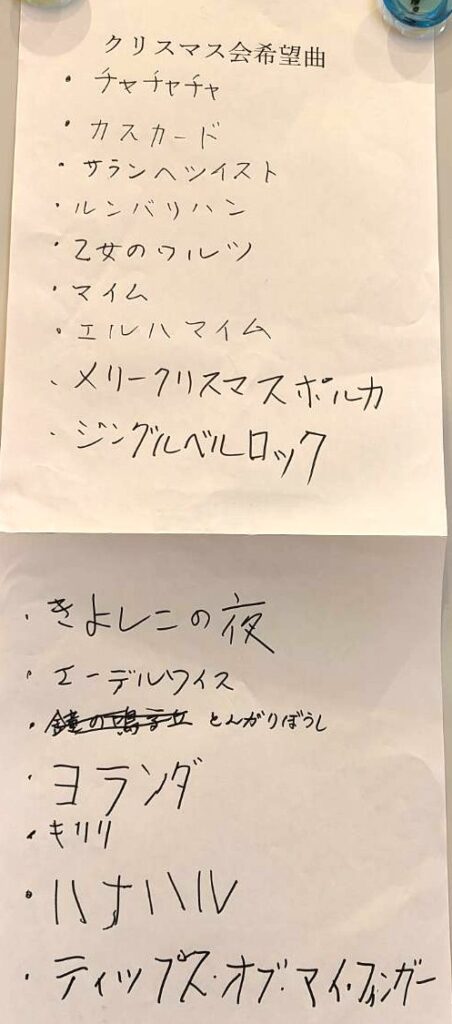 クリスマス会希望曲
・チャチャチャ
・カスカード
・サランヘツイスト
・ルンバリハン
・乙女のワルツ
・マイム
・エルハマイム
・メリークリスマスポルカ
・ジングルベルロック
・きよしこの夜
・エーデルワイス
・とんがりぼうし
・ヨランダ
・キリリ
・ハナハル
・ティップス・オブ・マイ・フィンガー